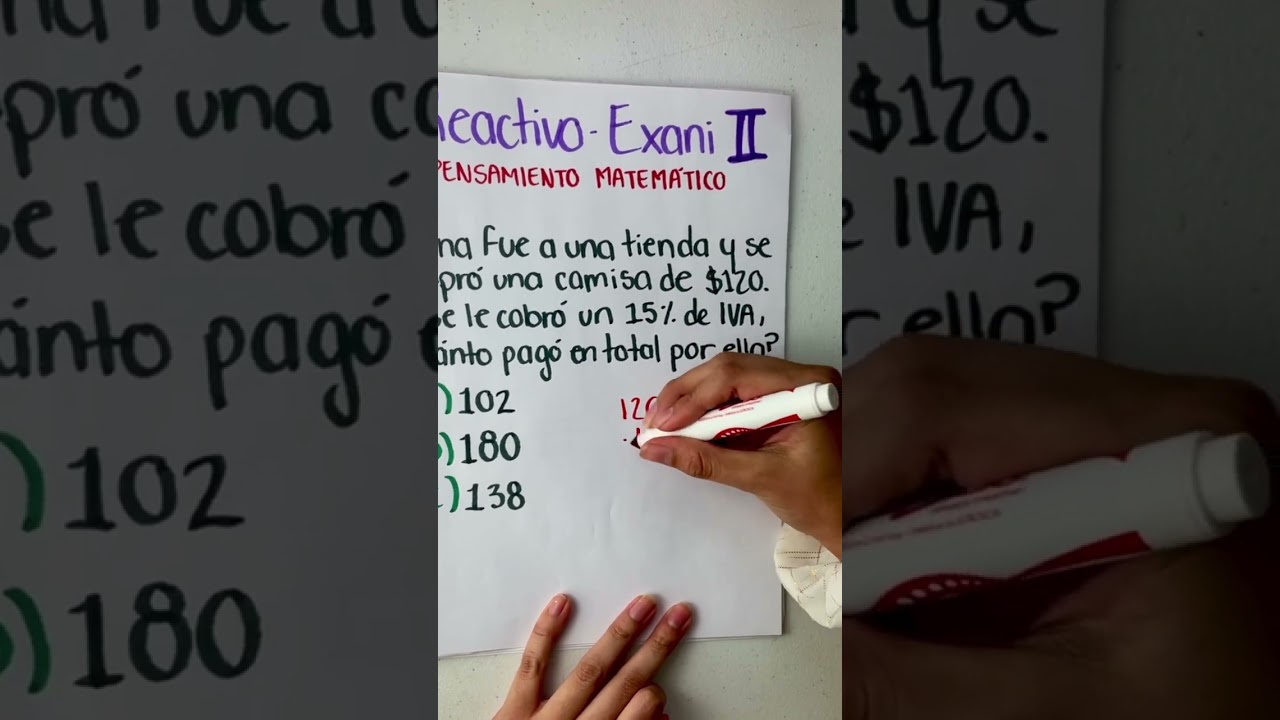 eactivo - Exani II
PENSAMIENTO MATEMÁTICO
na Fue a una tienda y se
pró una camisa de $120.
e le cobró un 15% de IVA,
ánto pagó en total por ella?
)102
)180
)138
12